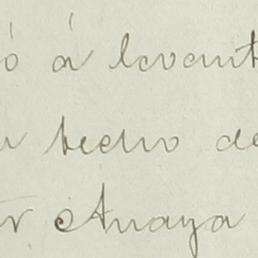 ó á levant
techo de
Anaya